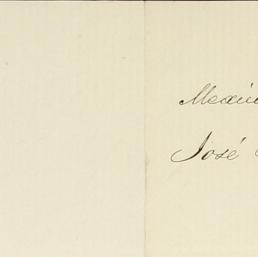 Mexic
José